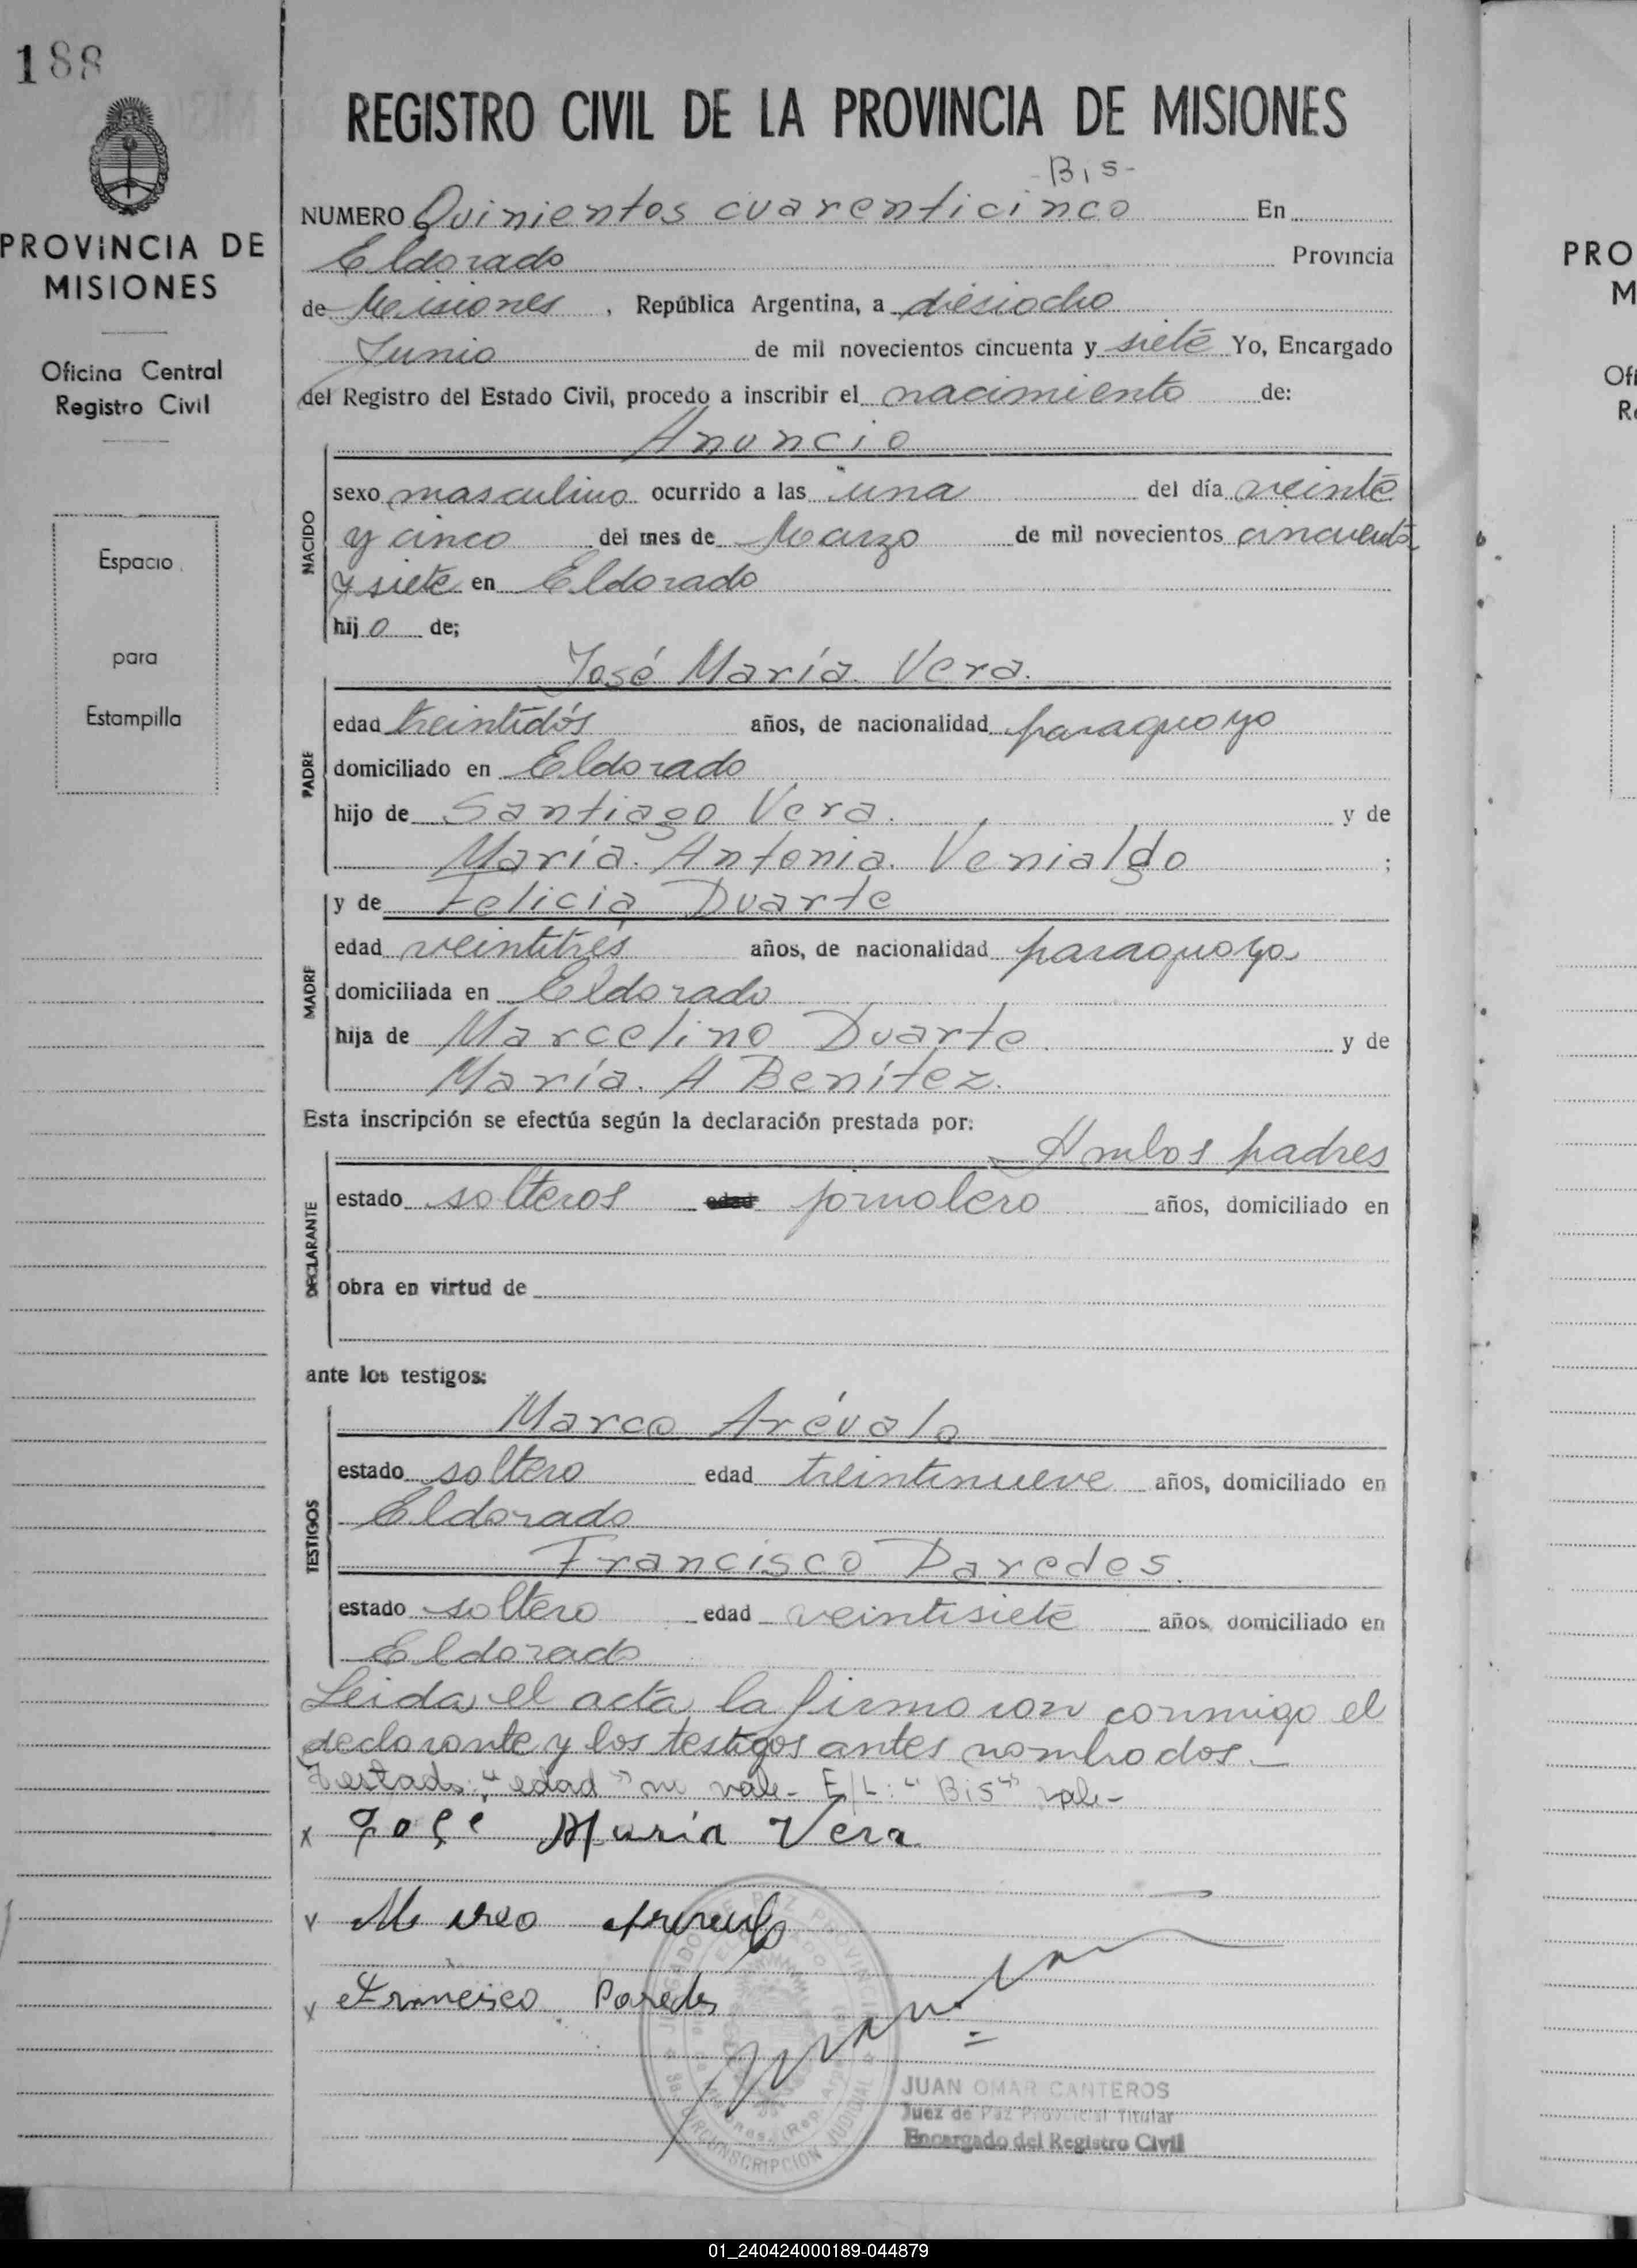 188
REGISTRO CIVIL DE LA PROVINCIA DE MISIONES
PROVINCIA DE
MISIONES
Oficina Central
Registro Civil
Espacio
para
Estampilla
-Bis-
NUMERO Quinientos cuarenticinco En
Eldorado Provincia
de Misiones, República Argentina, a diesiocho
Junio de mil novecientos cincuenta y siete Yo, Encargado
del Registro del Estado Civil, procedo a inscribir el nacimiento de:
Anuncio
NACIDO
sexo masculino ocurrido a las una del día veinte
y cinco del mes de Marzo de mil novecientos cincuenta
y siete en Eldorado
hijo de;
José María Vera.
PADRE
edad treintidós años, de nacionalidad paraguayo
domiciliado en Eldorado
hijo de Santiago Vera. y de
María. Antonia. Venialdo ;
y de Felicia Duarte
MADRE
edad veintitrés años, de nacionalidad paraguaya
domiciliada en Eldorado
hija de Marcelino Duarte y de
María. A Benítez.
Esta inscripción se efectúa según la declaración prestada por:
Ambos padres
DECLARANTE
estado solteros edad jornalero años, domiciliado en
obra en virtud de
ante los testigos:
Marco Arévalo
TESTIGOS
estado soltero edad treintinueve años, domiciliado en
Eldorado
Francisco Paredes.
estado soltero edad veintisiete años, domiciliado en
Eldorado
Leida el acta la firmaron conmigo el
declarante y los testigos antes nombrados.-
Testado: "edad" no vale- E/L: "Bis" vale-
x Jose Maria Vera
Marco Arevalo
Francisco Paredes
JUZGADO DE PAZ PROVINCIAL
CIRCUNSCRIPCION JUDICIAL
JUAN OMAR CANTEROS
Juez de Paz Provincial Titular
Encargado del Registro Civil
PRO
M
Ofi
Re
01_240424000189-044879